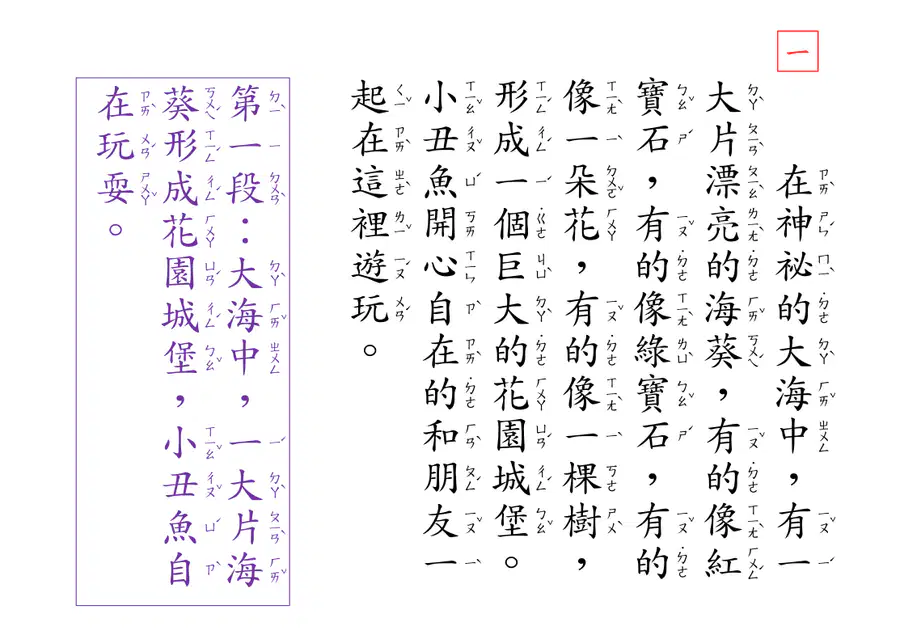 一
在神祕的大海中，有一
大片漂亮的海葵，有的像紅
寶石，有的像綠寶石，有的
像一朵花，有的像一棵樹，
形成一個巨大的花園城堡。
小丑魚開心自在的和朋友一
起在這裡遊玩。
第一段：大海中，一大片海
葵形成花園城堡，小丑魚自
在玩耍。